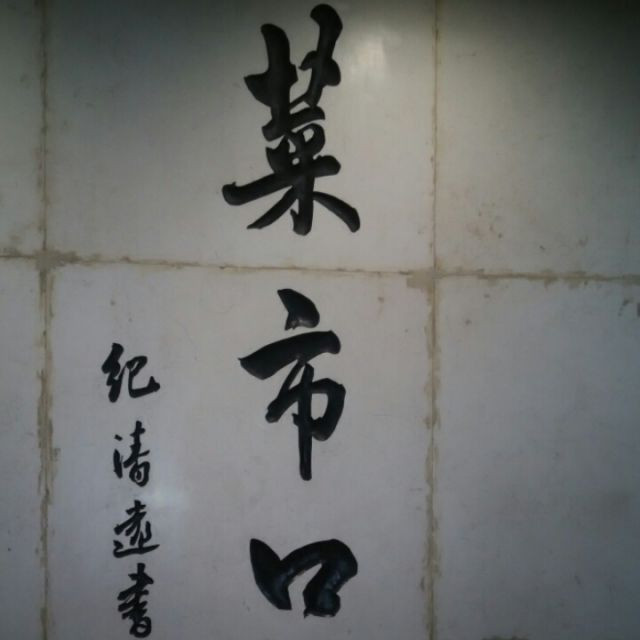 菜市口
纪清远书